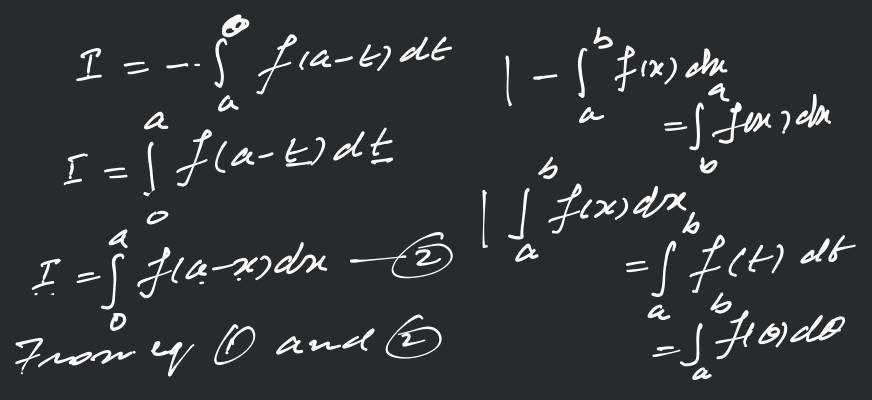 I = -∫ₐ⁰ f(a-t) dt
I = ∫₀ᵃ f(a-t) dt
I = ∫₀ᵃ f(a-x) dx — ②
From eq ① and ②
| -∫ₐᵇ f(x) dx
= ∫_bᵃ f(x) dx
| ∫ₐᵇ f(x) dx
= ∫ₐᵇ f(t) dt
= ∫ₐᵇ f(θ) dθ